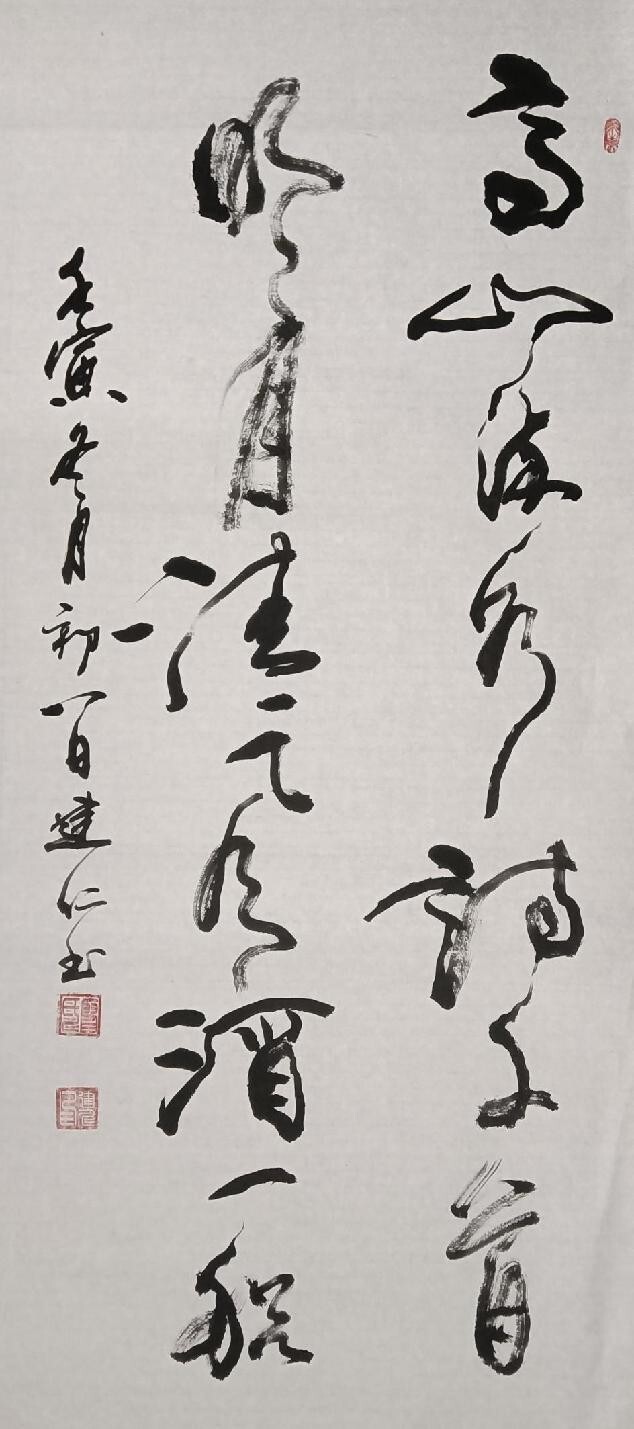 高山流水詩千首
明月清風酒一船
壬寅冬月初一日建仁书